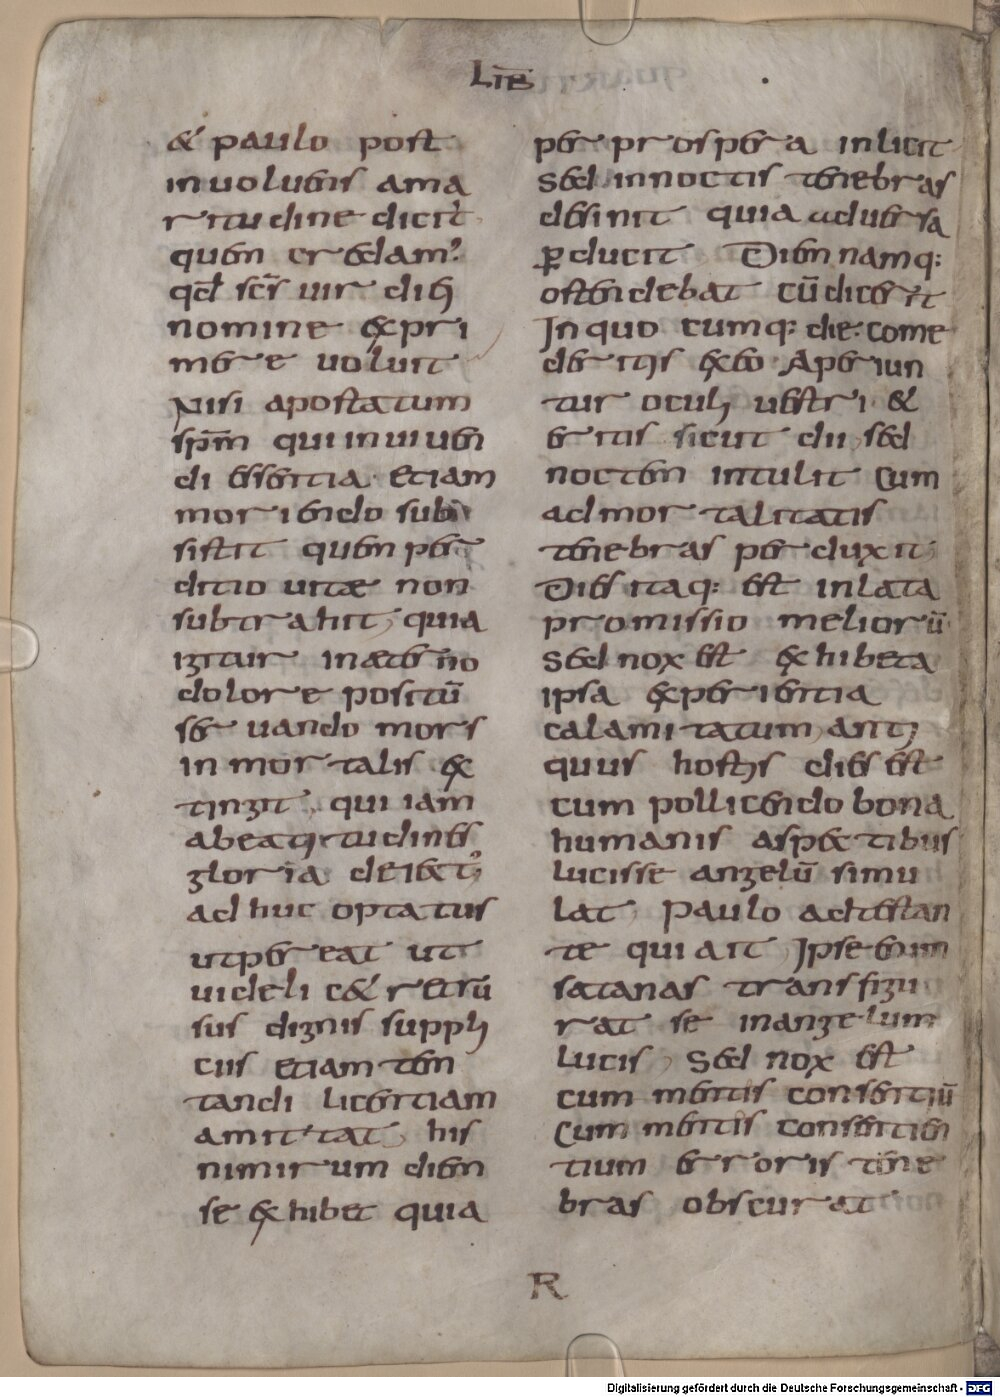 LIƀ
& paulo post
inuolueris ama
ritudine dicit
quem credam?
qđ scs̄ uir diei
nomine expri
mere uoluit
Nisi apostatum
spm̄ qui in uiuen
di essentia etiam
moriendo sub
sistit quem per
ditio uitæ non
subtrahit, quia
igitur in aeterno
dolore positū
seruando mors
inmortalis ex
tingit qui iam
a beatitudinis
gloria deiect'
adhuc optatus
ut pereat ut
uideli c& retrū
sus dignis suppli
ciis etiam tem
tandi licentiam
amittat, his
nimirum diem
se exhibet quia
per prospera inlicit
sed in noctis tenebras
desinit quia aduersa
ꝑducit Diem namq:
ostendebat cū dicerit
In quo cumq: die come
deritis ex eo Aperiun
tur oculi uestri &
eritis sicut dii, sed
noctem intulit cum
ad mortalitatis
tenebras perduxit,
Dies itaq: est inlata
promissio meliorū
Sed nox est exhibeta
ipsa experientia
calamitatum, anti
quus hostis dies est
cum pollicendo bona
humanis aspectibus
lucisse angelū simu
lat, Paulo adtestan
te qui ait Ipse enim
satanas transfigu
rat se in angelum
lucis, Sed nox est
cum mentis consentiū
Cum mentis consentien
tium erroris tene
bras obscurat
R
Digitalisierung gefördert durch die Deutsche Forschungsgemeinschaft - DFG